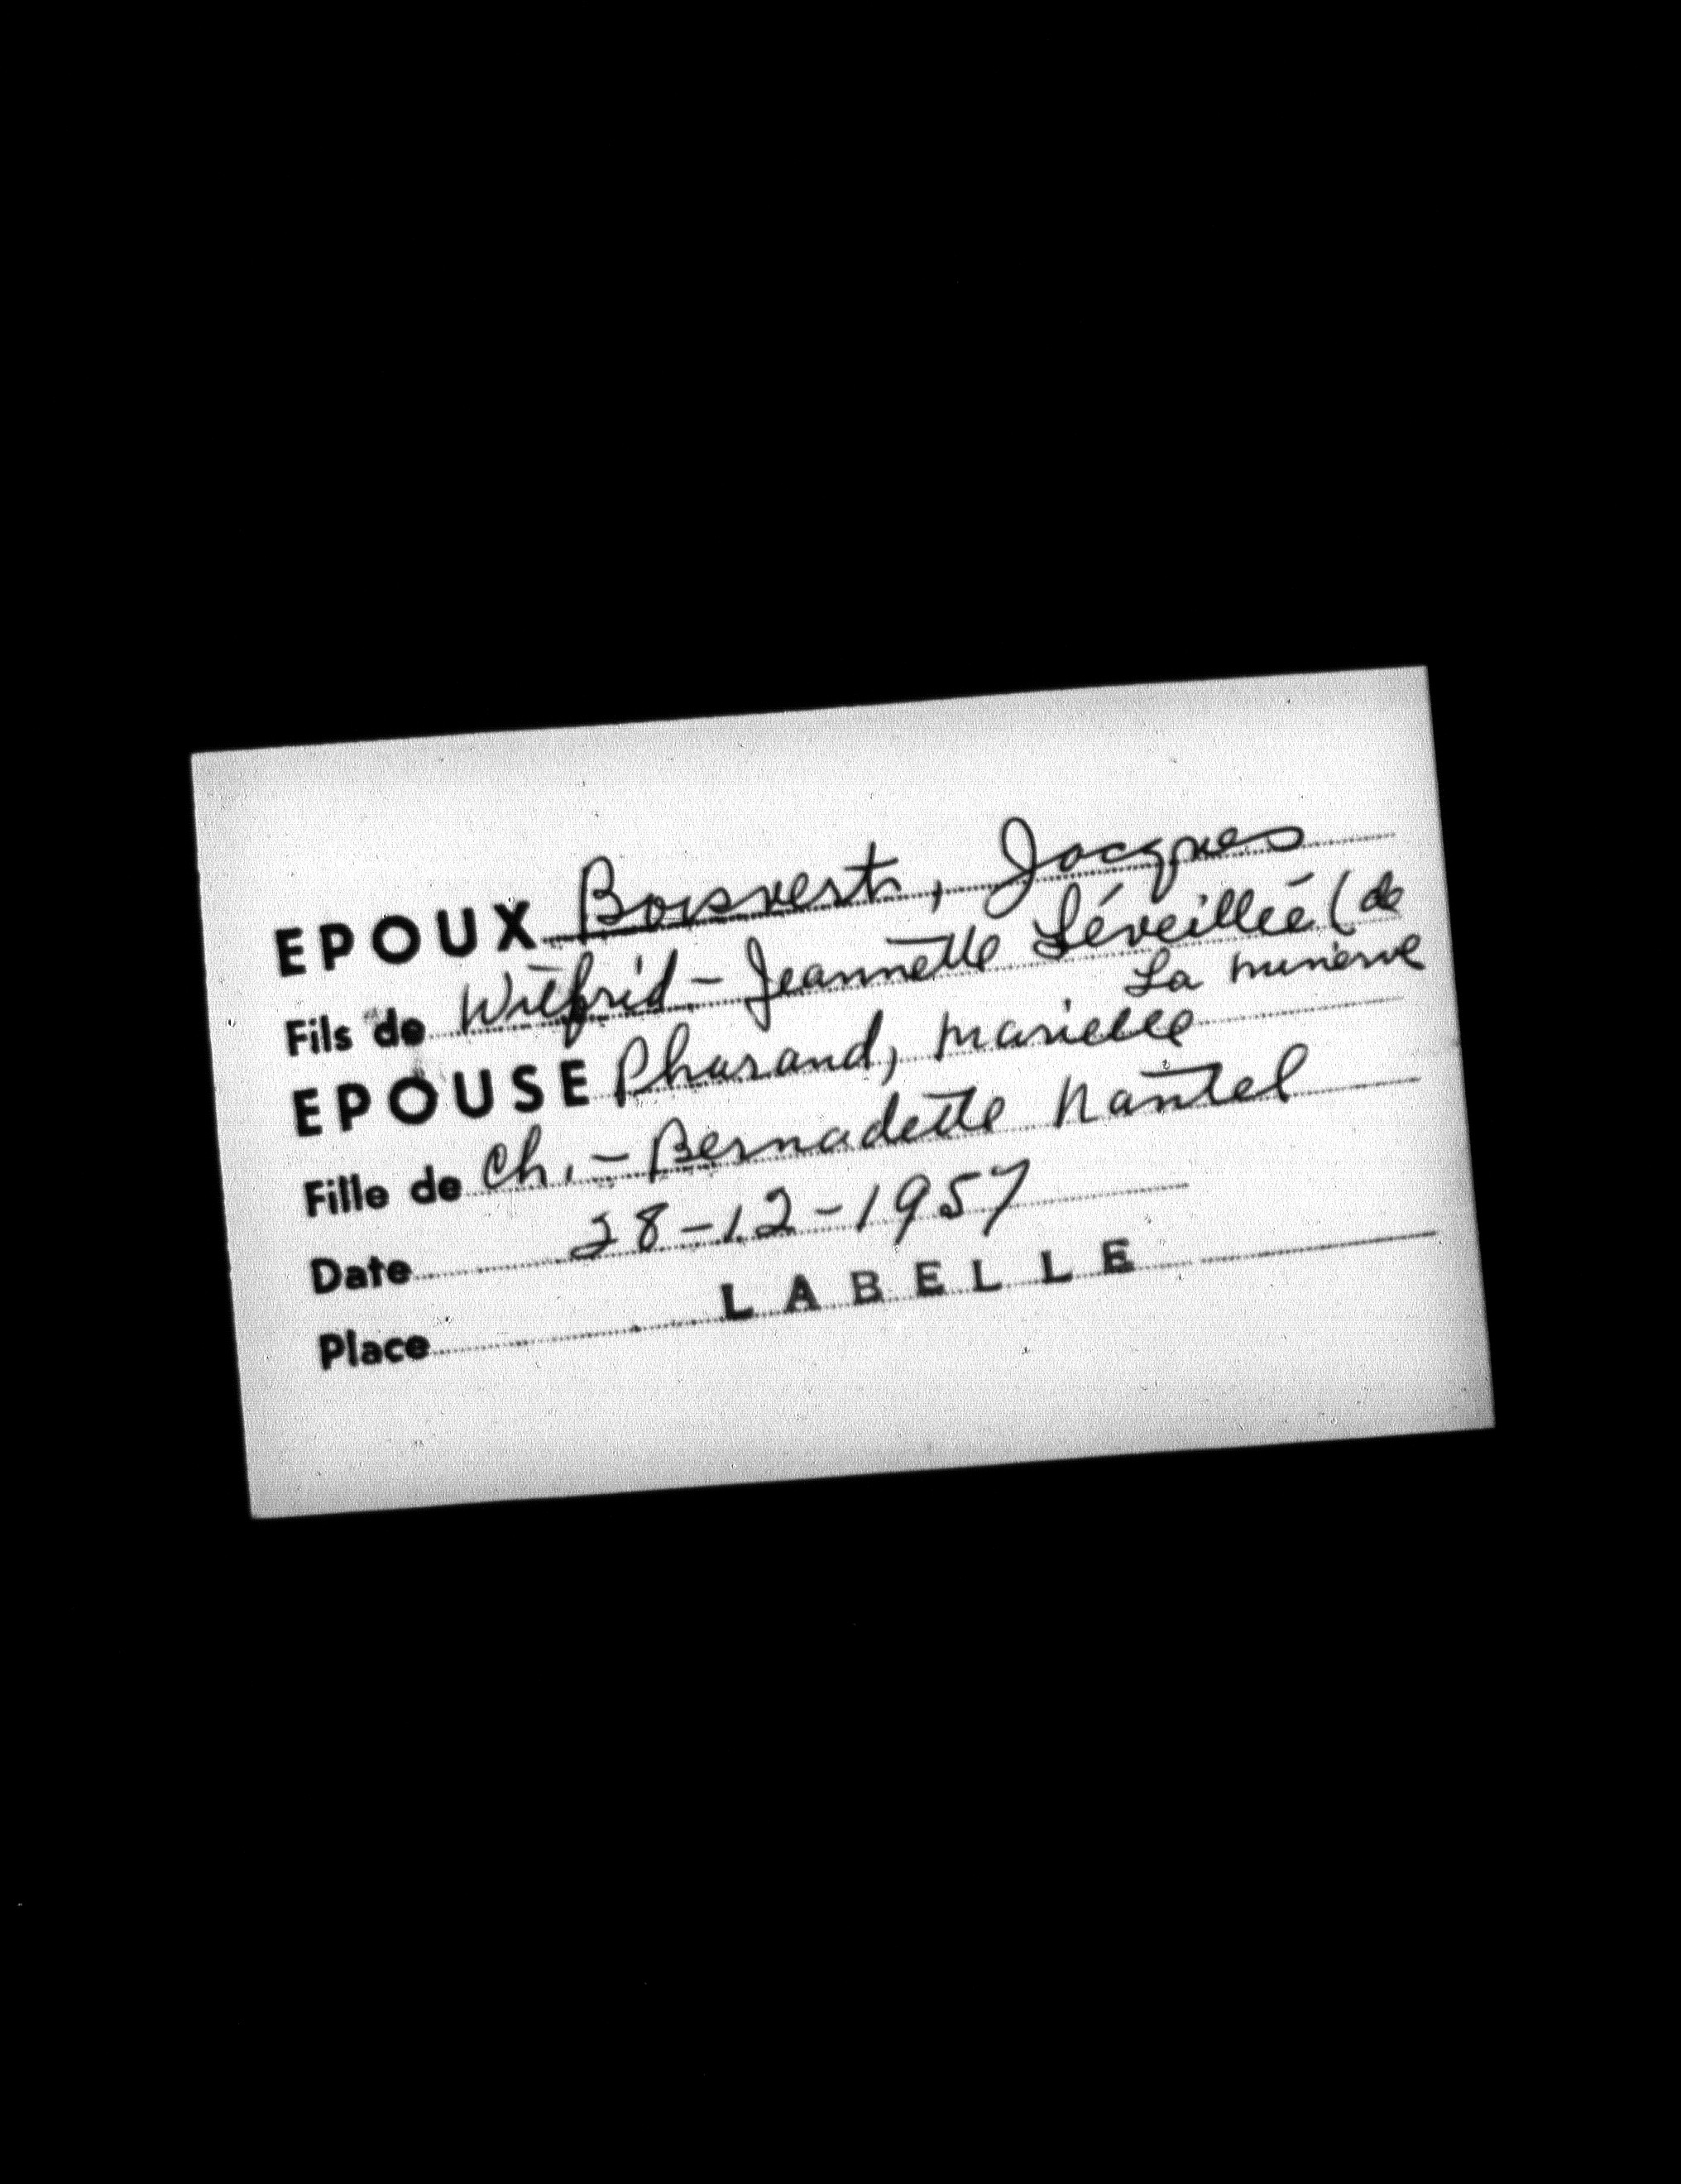 EPOUX Boisvert, Jacques
Fils de Wilfrid - Jeannette Léveillée (de
La minerve
EPOUSE Pharand, Marielle
Fille de Ch. - Bernadette Nantel
Date 28-12-1957
Place LABELLE